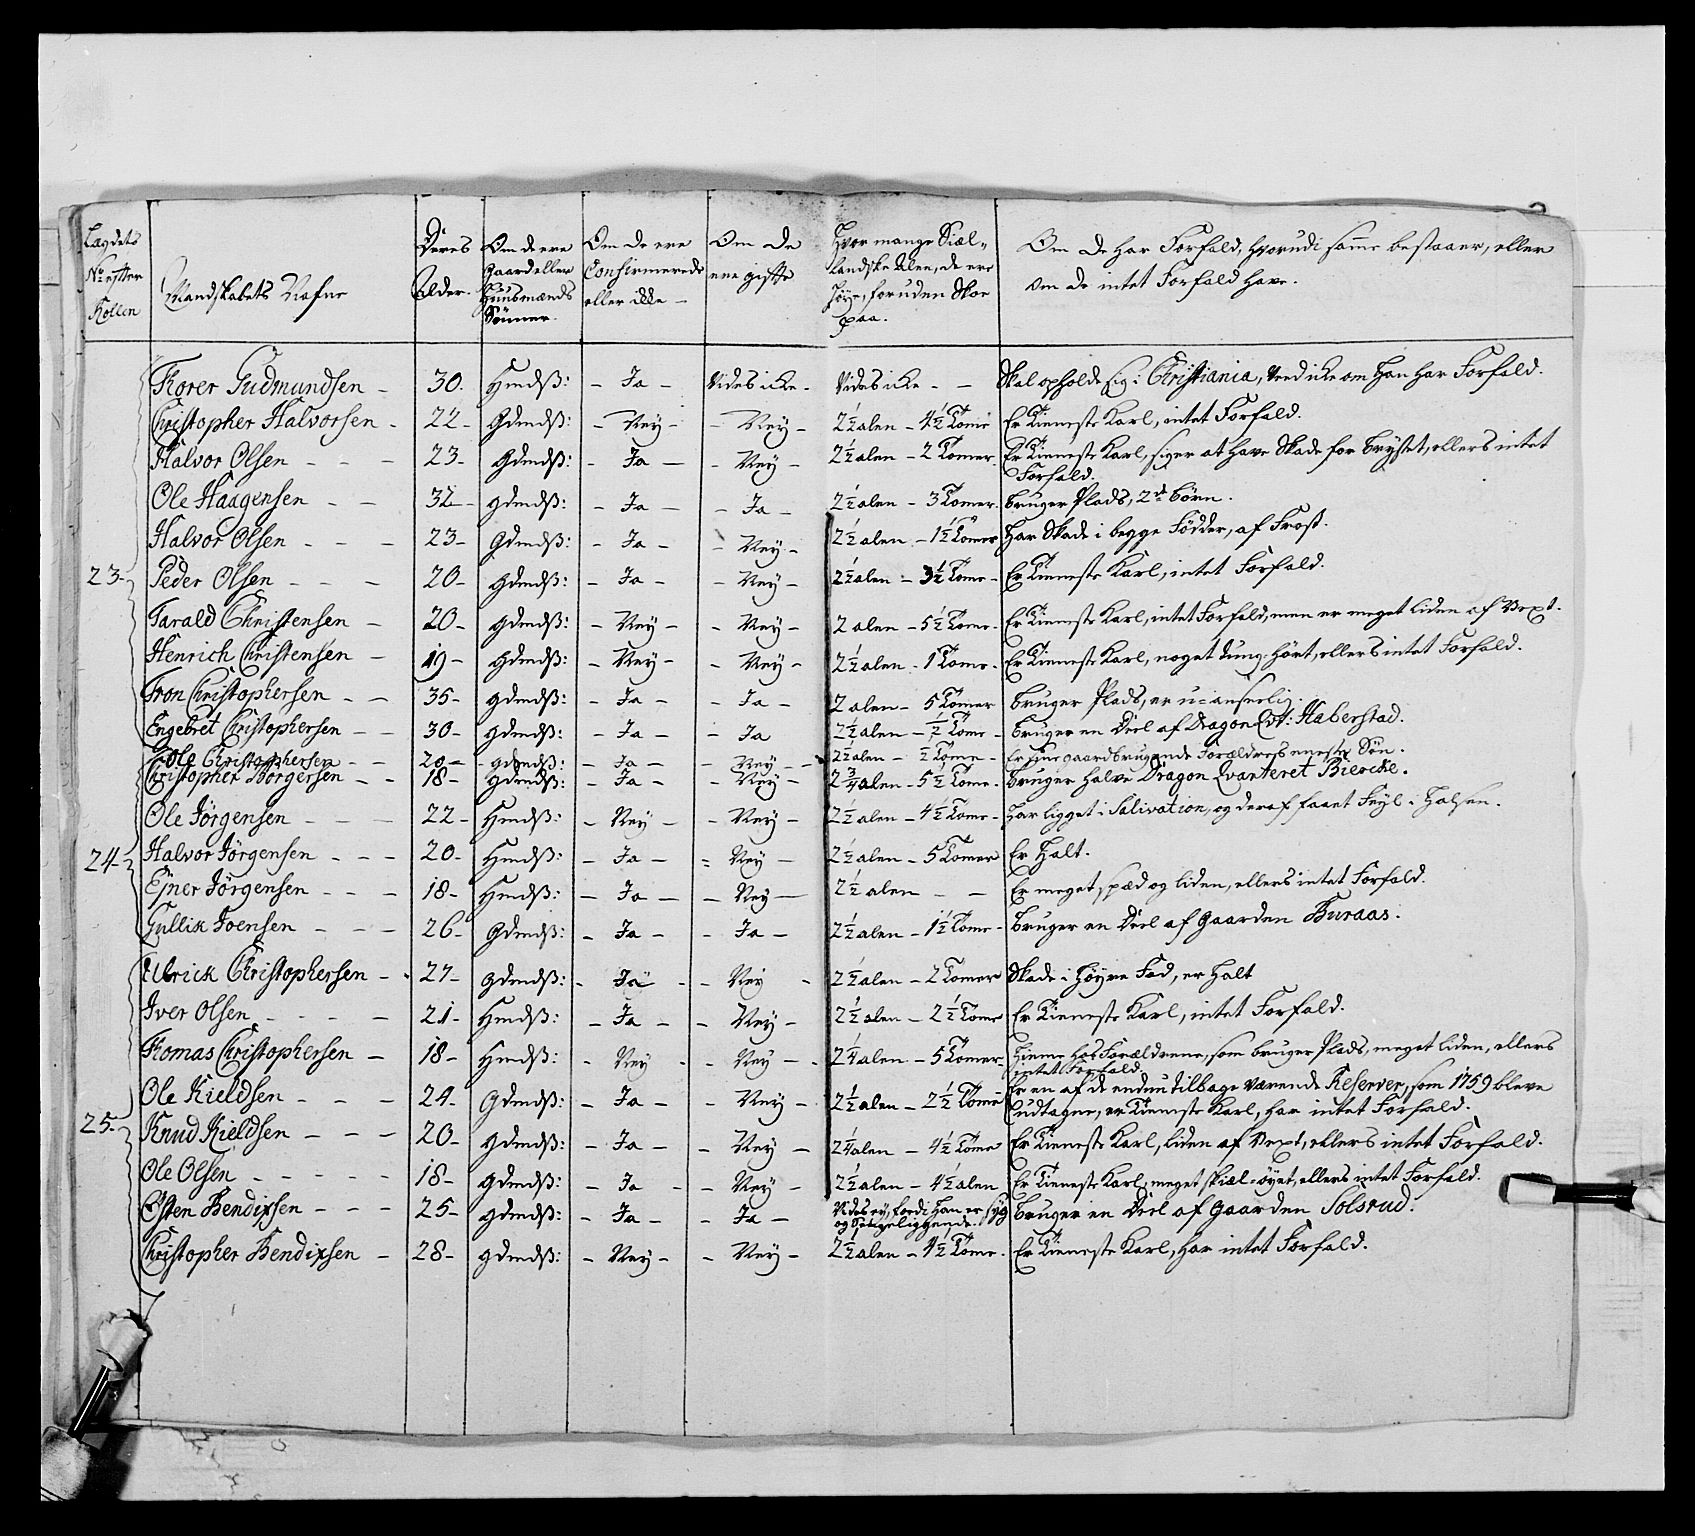 Lægdets No: efter Rollen | Mandskabets Nafne | Deres Alder. | Om de ere Gaard eller Huusmænds Sönner. | Om de ere Confirmerede eller ikke - | Om de ere gifte | Hvor mange Siællandske Alen, de ere höye, foruden Skoe paa. | Om de har Forfald, hvorudi samme bestaaer, eller om de intet Forfald have.
Torer Gudmundsen - 30. Hmdsß: - Ja - Vides icke. Vides icke - - Skal opholde sig i Christiania, veed icke om han har Forfald.
Christopher Halvorsen - 22- Gdmdsß: - Ney - - Ney - 2½ alen - 4½ Tome Er Tieneste Karl, intet Forfald.
Halvor Olsen - - - 23- Gdmdsß: - Ja - - Ney - 2½ alen - 2 Tomer Er Tieneste Karl, siger at have Skade for Brystet, ellers intet
Forfald.
Ole Haagensen - - 32- gdmdsß: - Ja - - Ja - 2½ alen - 3 Tomer. bruger Plads, 2de börn.
Halvor Olsen - - - 23- Gdmdsß: - Ja - - Ney - 2½ alen - 1½ Tomer Har Skade i begge Födder, af Frost.
23- Peder Olsen - - - 20- Gdmdsß: - Ja - - Ney - 2½ alen - 3½ Tome - Er Tieneste Karl, intet Forfald.
Tarald Christensen - 20- gdmdsß: - Ney - - Ney - 2 alen - 5½ Tome - Er Tieneste Karl, intet Forfald, men er meget liden af Vext.
Henrich Christensen - 19- gdmdsß: - Ney - - Ney - 2½ alen - 1 Tome - Er Tieneste Karl, noget tung-hört, ellers intet Forfald.
Tron Christophersen - - 35- gdmdsß: - Ja - - Ja - 2 alen - 5 Tomer bruger Plads, er u-anseelig
Engebret Christophersen - - 30- gdmdsß: - Ja - - Ja 2½ alen - ½ Tome - bruger en Deel af Dragon Qvt: Haberstad.
Ole Christophersen - - 20- gdmdsß: - Ja - - Ney - 2½ alen - ½ Tome - Er sine gaardbrugende Forældres eneste Sön.
Christopher Börgersen - - 18- Gdmdsß: - Ja - - Ney - 2¾ alen - 5½ Tome - bruger halve Dragon Qvarteret Biercke.
Ole Jörgensen - - - 22- Hmdsß: - Ney - - Ney - 2½ alen - 4½ Tome - Har ligget i Salivation, og deraf faaet Feyl i Halsen.
24- Halvor Jörgensen - - - 20- Hmdsß: - Ja - - Ney - 2½ alen - 5 Tomer Er Halt.
Ejner Jörgensen - - - 18- Hmdsß: - Ja - - Ney - 2½ alen - - Er meget spæd og liden, ellers intet Forfald.
Gullik Joensen - - - 26- Gdmdsß: - Ja - - Ja - 2½ alen - 1½ Tome - bruger en Deel af Gaarden Buraas.
Ulrick Christophersen - 27- gdmdsß: - Ja - - Ney - 2½ alen - 2 Tomer Skade i höyre Fod, er Halt
Iver Olsen - - - - 21- Hmdsß: - Ja - - Ney - 2½ alen - 2½ Tome Er Tieneste Karl, intet Forfald.
Tomas Christophersen - 18- Hmdsß: - Ney - - Ney - 2¼ alen - 5 Tomer Hieme hos Forældrene, som bruger Plads, meget liden, ellers
intet Forfald.
Ole Kieldsen - - - 24- Gdmdsß: - Ja - - Ney - 2½ alen - 2½ Tome Er en af de endnu tilbage værende Reserver, som 1759 bleve
udtagne, er Tieneste Karl, har intet Forfald.
25- Knud Kieldsen - - - 20- gdmdsß: - Ja - - Ney - 2¼ alen - 4½ Tome Er Tieneste Karl, liden af Vext, ellers intet Forfald.
Ole Olsen - - - - - 18- gdmdsß: - Ja - - Ney - 2½ alen - 4½ alen Er Tieneste Karl, meget skiæl-öyet, ellers intet Forfald.
Osten Bendixsen - - - 25- gdmdsß: - Ja - - Ja - Vides ey, fordi Han er syg og Sengeliggende. bruger en Deel af Gaarden Solsrud.
Christopher Bendixsen - 28- gdmdsß: - Ney - - Ney - 2½ alen - 4½ Tome. Er Tieneste Karl, har intet Forfald.